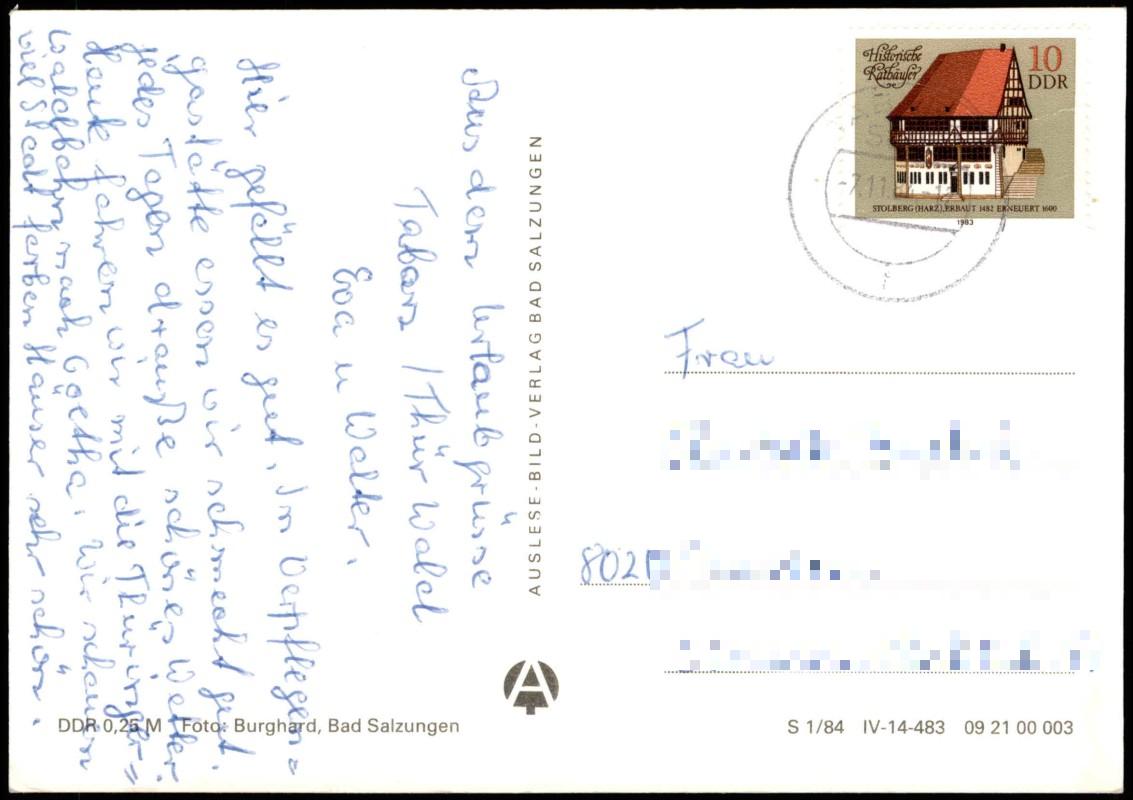 Aus dem Urlaubgrüsse
Tabarz / Thür Wald
Eva u Walter.
Hier gefällt es gut, In Verpflegen=
gastätte essen wir schmeckt gut.
jedes Tagen draüße schönes Wetter.
Heute fahren wir mit die Thüringer=
waldbahn nach Goetha. Wir schauen
viel Stadt farben Häuser sehr schön.
AUSLESE-BILD-VERLAG BAD SALZUNGEN
Historische
Rathäuser
10
DDR
STOLBERG (HARZ), ERBAUT 1482 ERNEUERT 1600
1983
-7.11
Frau
8021
DDR 0,25 M Foto: Burghard, Bad Salzungen
S 1/84 IV-14-483 09 21 00 003